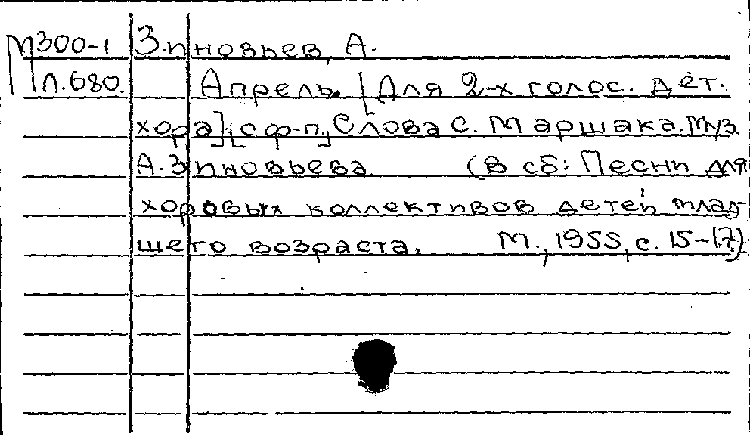 М300-1 Зиновьев, А.
Л.680. Апрель. [Для 2-х голос. дет.
хора] [с ф-п.] Слова С. Маршака. Муз.
А. Зиновьева. (В сб: Песни для
хоровых коллективов детей млад
шего возраста. М., 1955, с. 15-(7)